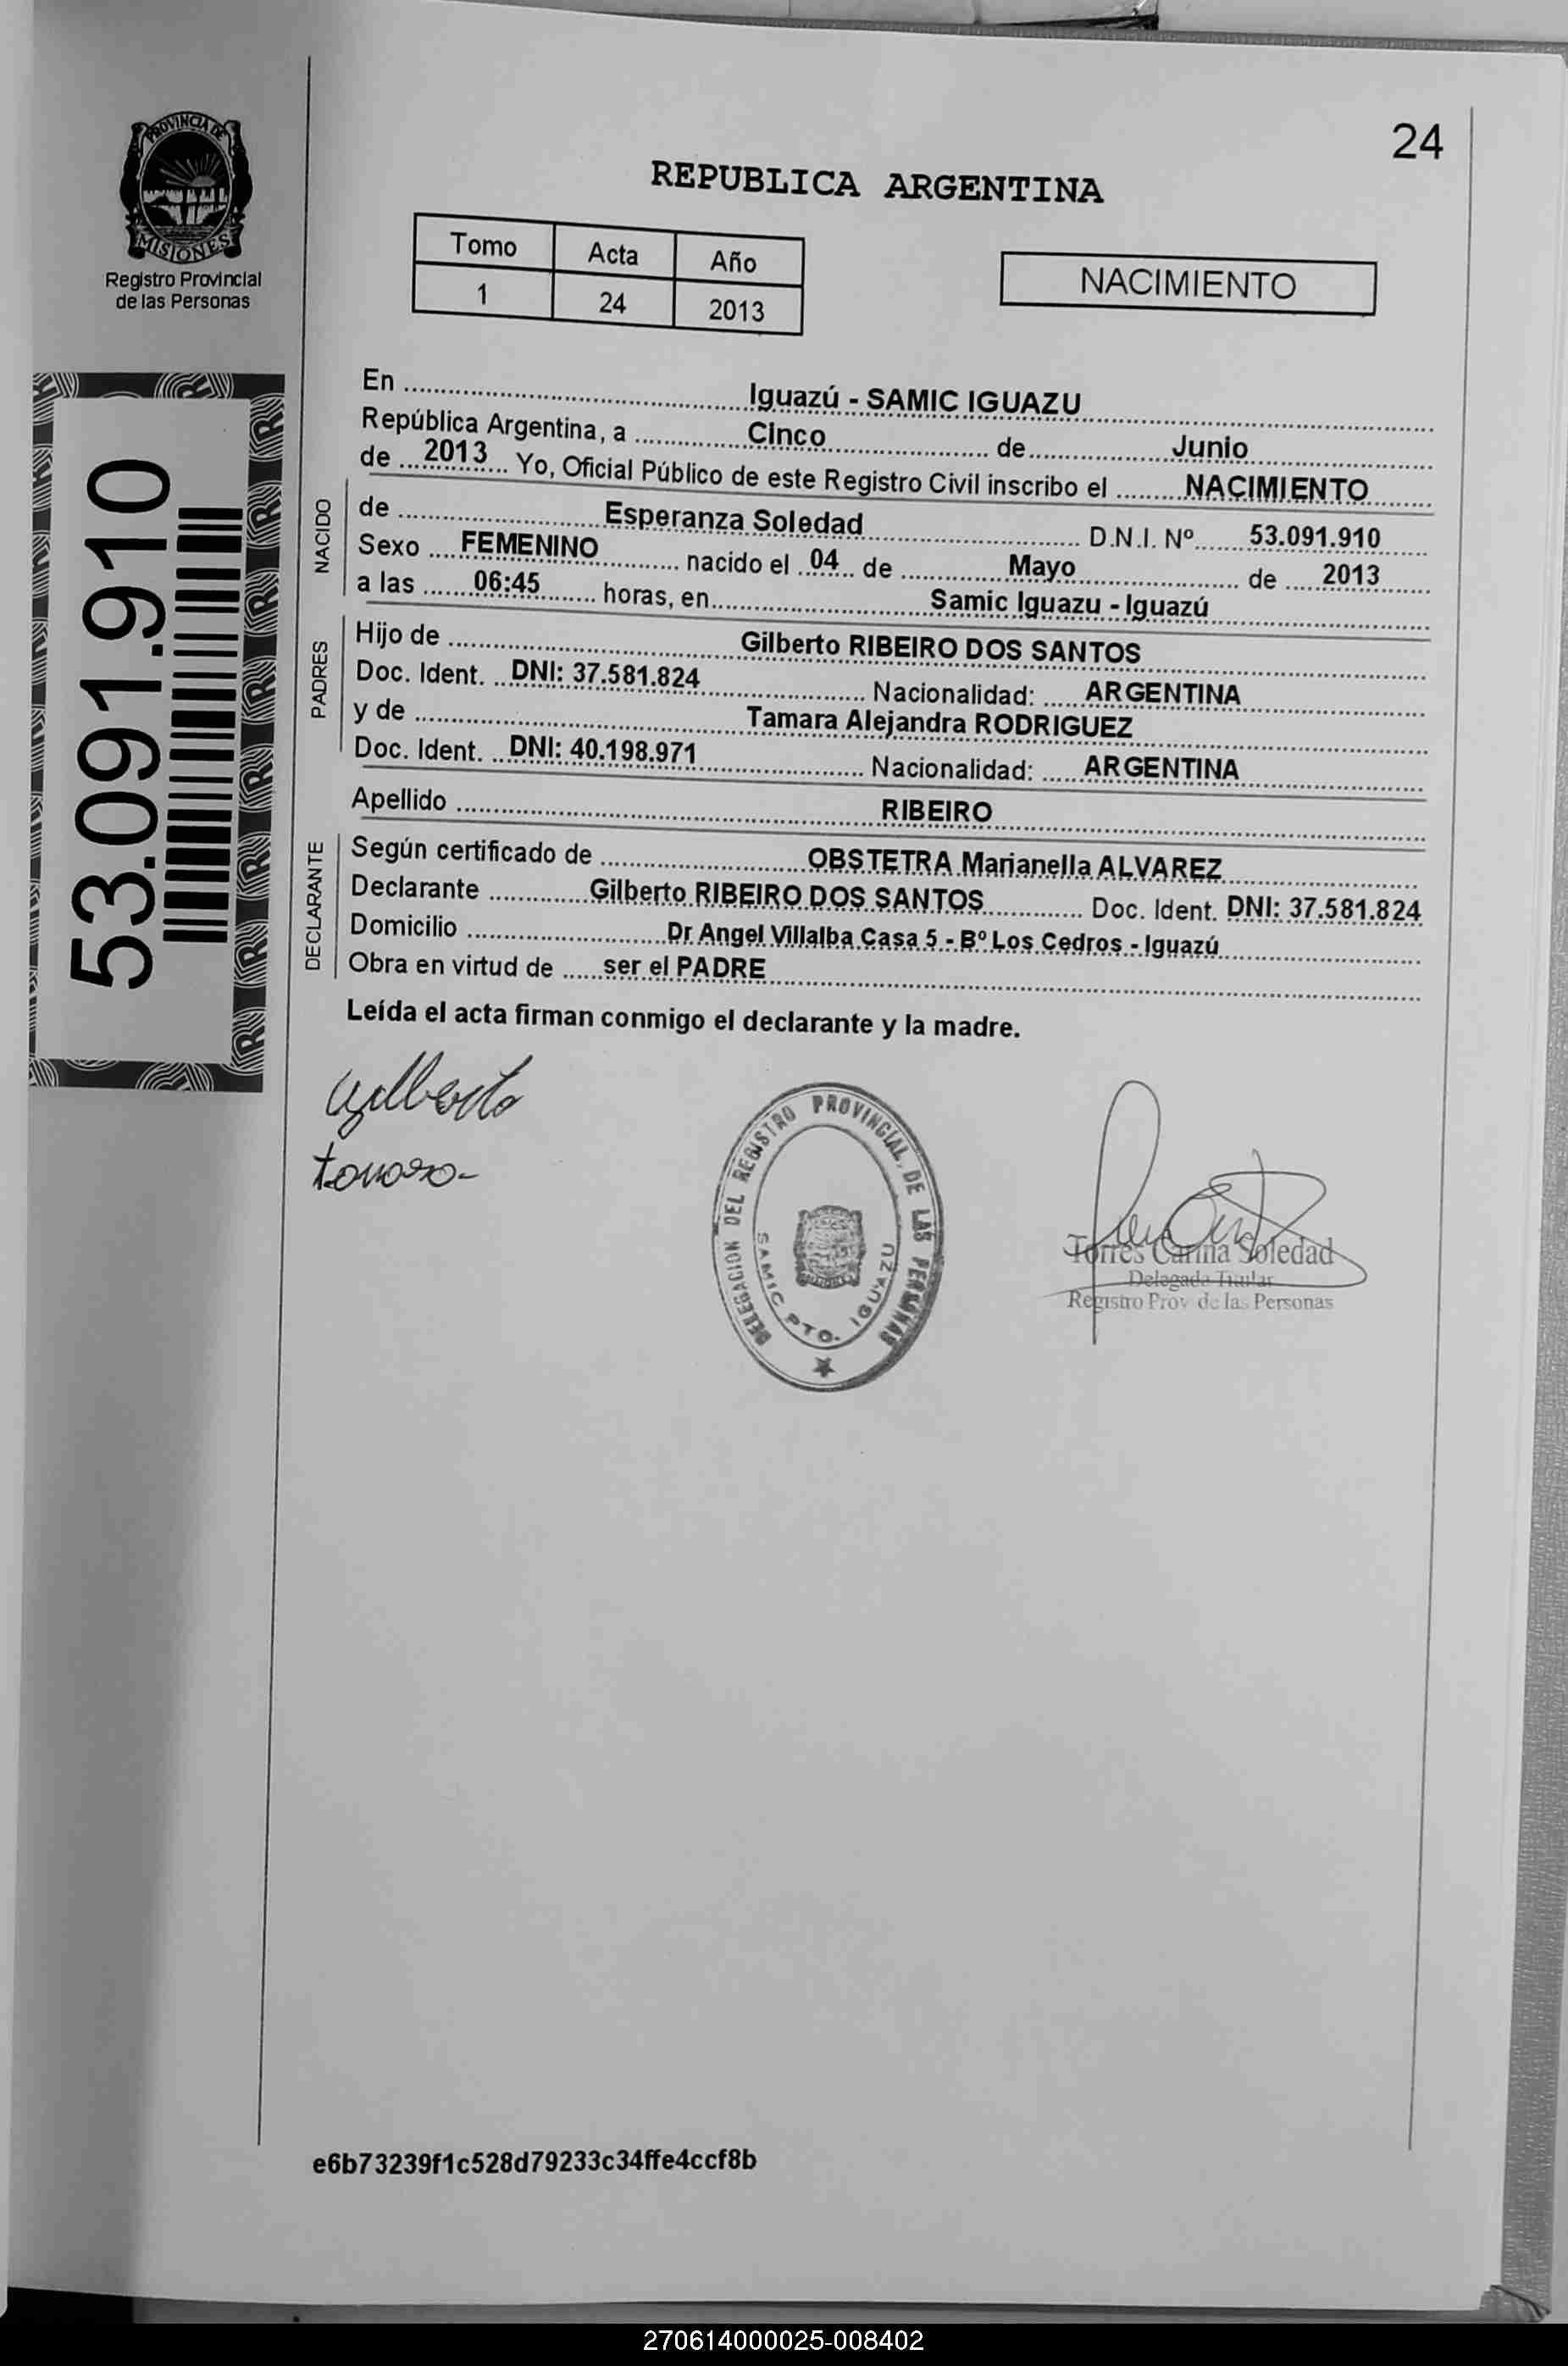 24
PROVINCIA DE
MISIONES
Registro Provincial
de las Personas
REPUBLICA ARGENTINA
Tomo Acta Año
1 24 2013
NACIMIENTO
53.091.910
En Iguazú - SAMIC IGUAZU
República Argentina, a Cinco de Junio
de 2013 Yo, Oficial Público de este Registro Civil inscribo el NACIMIENTO
NACIDO
de Esperanza Soledad D.N.I. Nº 53.091.910
Sexo FEMENINO nacido el 04 de Mayo de 2013
a las 06:45 horas, en Samic Iguazu - Iguazú
PADRES
Hijo de Gilberto RIBEIRO DOS SANTOS
Doc. Ident. DNI: 37.581.824 Nacionalidad: ARGENTINA
y de Tamara Alejandra RODRIGUEZ
Doc. Ident. DNI: 40.198.971 Nacionalidad: ARGENTINA
Apellido RIBEIRO
DECLARANTE
Según certificado de OBSTETRA Marianella ALVAREZ
Declarante Gilberto RIBEIRO DOS SANTOS Doc. Ident. DNI: 37.581.824
Domicilio Dr Angel Villalba Casa 5 - Bº Los Cedros - Iguazú
Obra en virtud de ser el PADRE
Leída el acta firman conmigo el declarante y la madre.
DELEGACION DEL REGISTRO PROVINCIAL DE LAS PERSONAS
SAMIC PTO. IGUAZU
Torres Carina Soledad
Delegada Titular
Registro Prov de las Personas
e6b73239f1c528d79233c34ffe4ccf8b
270614000025-008402